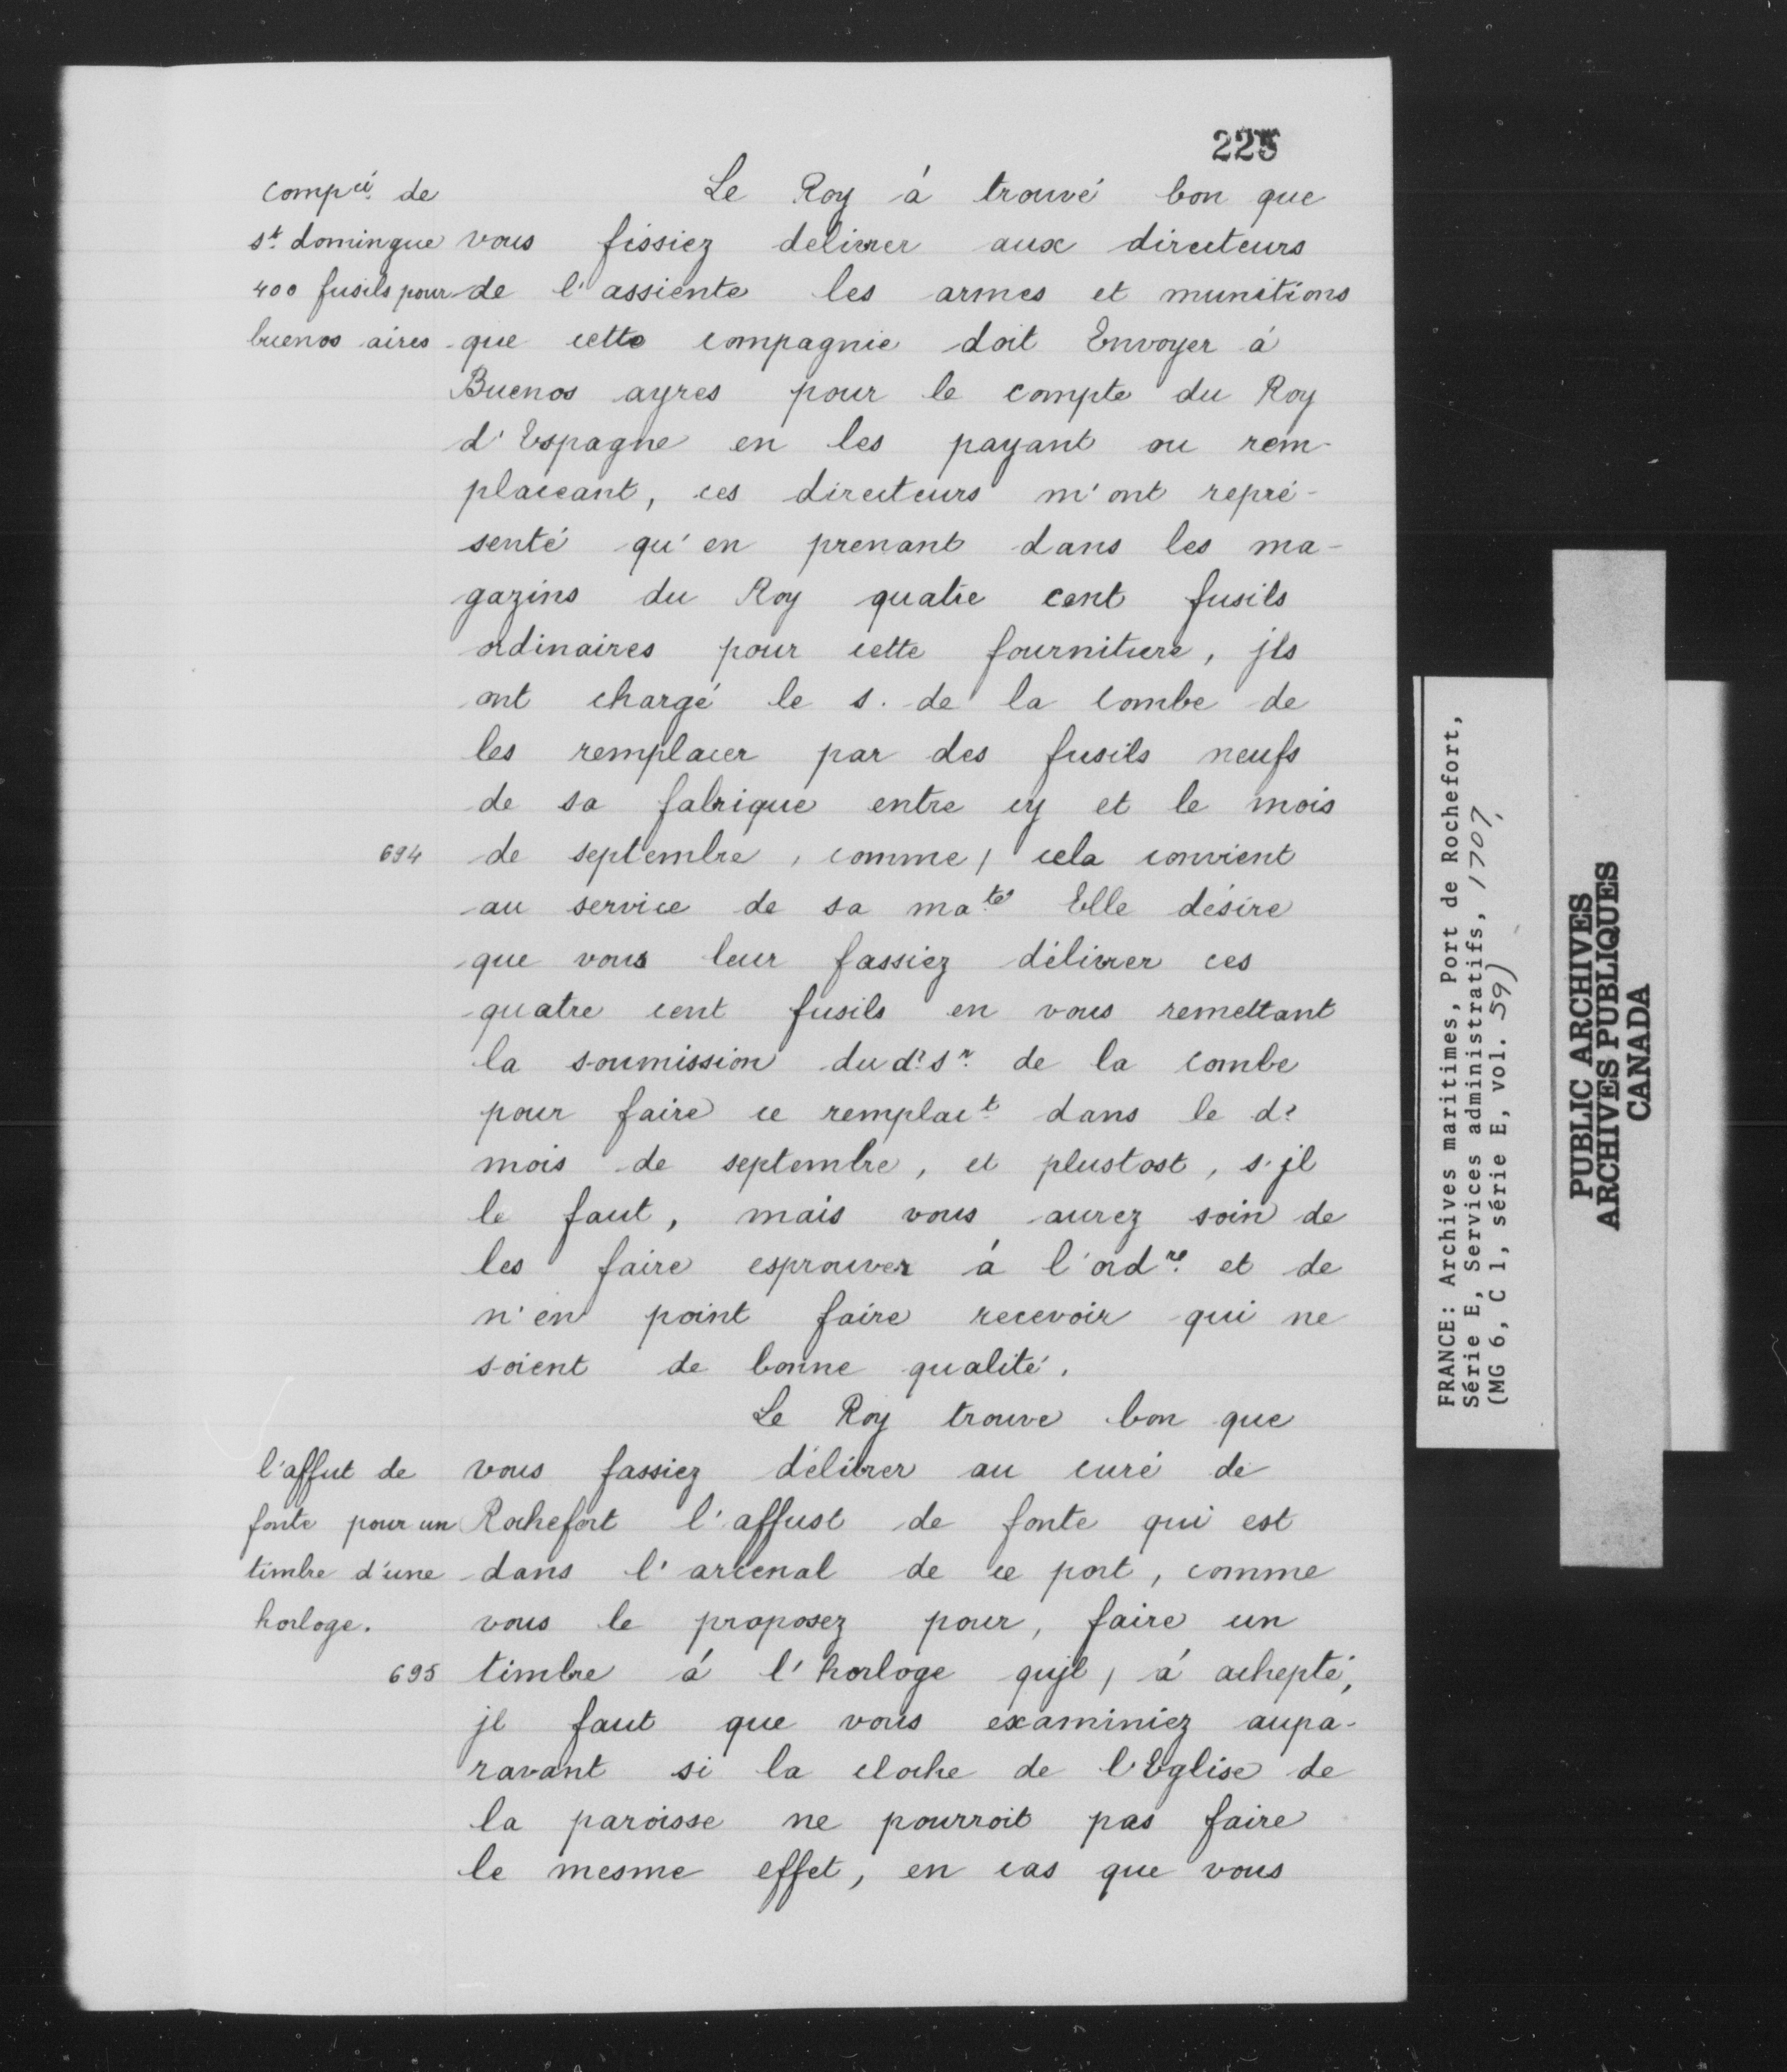 225
compie. de
st. domingue
400 fusils pour
buenos aires
Le Roy à trouvé bon que
vous fissiez delivrer aux directeurs
de l'assiente les armes et munitions
que cette compagnie doit Envoyer à
Buenos ayres pour le compte du Roy
d'Espagne en les payant ou rem-
placeant, ces directeurs m'ont repré-
senté qu'en prenant dans les ma-
gazins du Roy quatre cent fusils
ordinaires pour cette fourniture, jls
ont chargé le s. de la combe de
les remplacer par des fusils neufs
de sa fabrique entre cy et le mois
694 de septembre, comme, cela convient
au service de sa ma.té Elle désire
que vous leur fassiez délivrer ces
quatre cent fusils en vous remettant
la soumission dud.t s.r de la combe
pour faire ce remplac.t dans le d.t
mois de septembre, et plustost, s'jl
le faut, mais vous aurez soin de
les faire esprouver à l'ord.re et de
n'en point faire recevoir qui ne
soient de bonne qualité.
l'affut de
fonte pour un
timbre d'une
horloge.
Le Roy trouve bon que
vous fassiez délivrer au curé de
Rochefort l'affust de fonte qui est
dans l'arcenal de ce port, comme
vous le proposez pour, faire un
695 timbre à l'horloge qujl, à achepté,
jl faut que vous examiniez aupa-
ravant si la cloche de l'Eglise de
la paroisse ne pourroit pas faire
le mesme effet, en cas que vous
FRANCE: Archives maritimes, Port de Rochefort,
Série E, Services administratifs, 1707,
(MG 6, C 1, série E, vol. 59)
PUBLIC ARCHIVES
ARCHIVES PUBLIQUES
CANADA